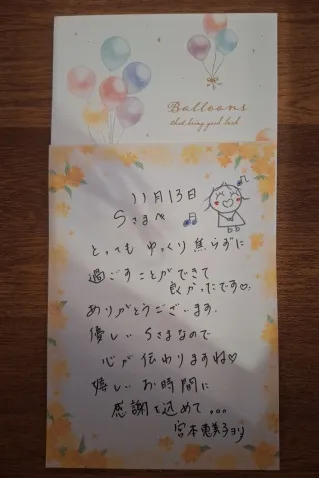 Balloons
that bring good luck
11月13日
Sさまへ
とってもゆっくり焦らずに
過ごすことができて
良かったです♡.
ありがとうございます.
優しいSさまなので
心が伝わりますね♡
嬉しいお時間に
感謝を込めて...
宮本恵美子より